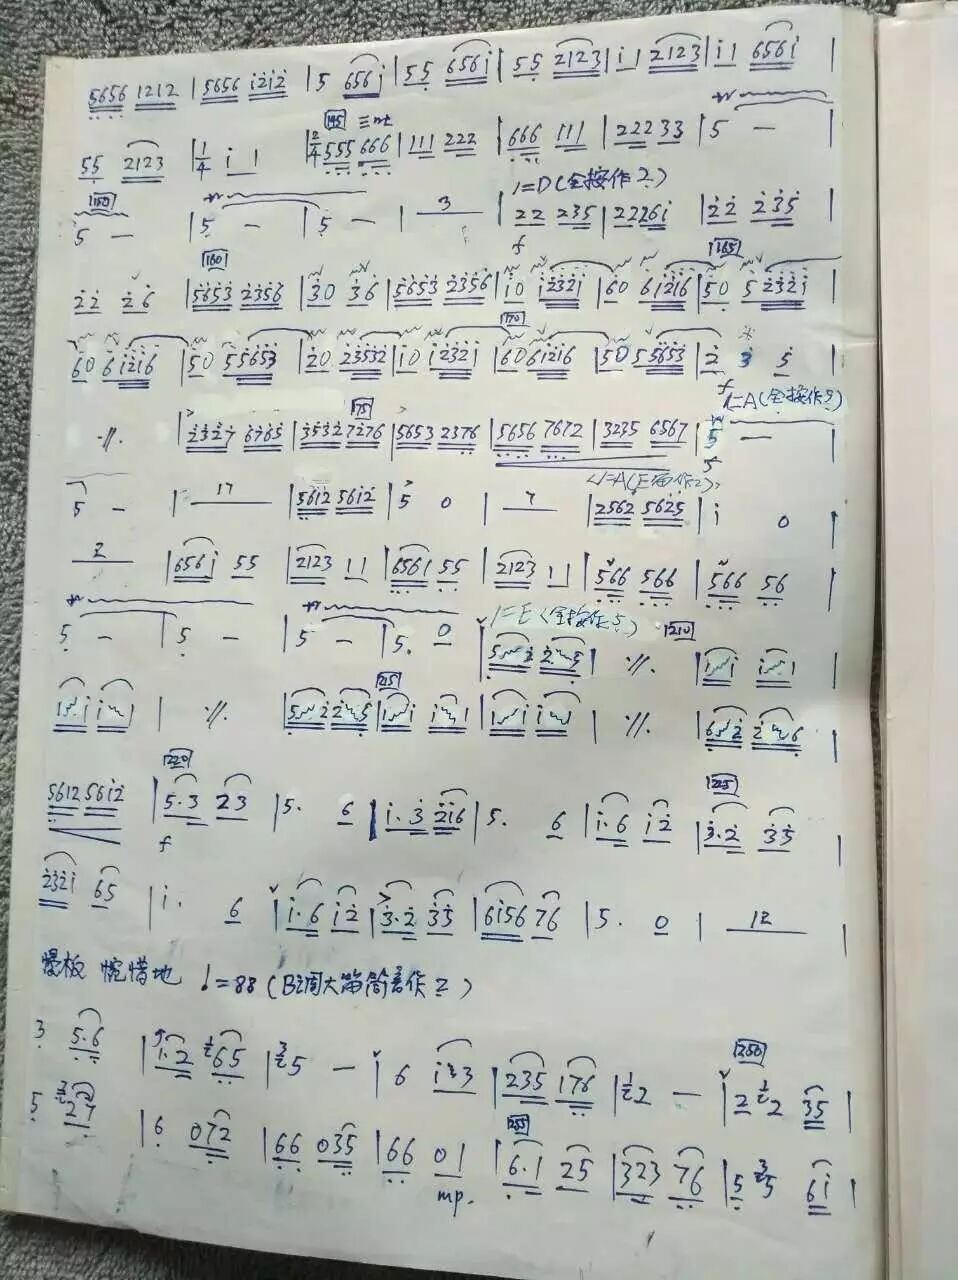 5656 1212 | 5656 1212 | 5 6561 | 55 6561 | 55 2123 | 11 2123 | 11 6561 |
55 2123 | 1/4 1 1 | 2/4 555 666 | 111 222 | 666 111 | 222 33 | 5 — |
145 三吐
1=D(全按作2)
150
5 — | 5 — | 5 — | 3 | 22 235 | 22261 | 22 235 |
f
160 165
22 26 | 5653 2356 | 30 36 | 5653 2356 | 10 12321 | 60 61216 | 50 52321
170
60 61216 | 50 55653 | 20 23532 | 10 12321 | 60 61216 | 50 55653 | 2 3 5 |
f
1=A(全按作5)
75
·//. | 2327 6765 | 3532 7276 | 5653 2376 | 5656 7672 | 3235 6567 | 5 — |
1=A(作2)
5 — | 17 | 5612 5612 | 5 0 | 7 | 2562 5625 | 1 0 |
2 | 6561 55 | 2123 11 | 6561 55 | 2123 11 | 566 566 | 566 56 |
1=E(全按作5) 210
5 — | 5 — | 5 — | 5. 0 | 5 2 2 5 | ·//. | 1 1 1 1 |
215
1 1 1 1 | ·//. | 5 2 2 5 | 1 1 1 1 | 1 1 1 1 | ·//. | 6 2 2 6 |
220 225
5612 5612 | 5.3 23 | 5. 6 | 1.3 216 | 5. 6 | 1.6 12 | 3.2 35 |
f
2321 65 | 1. 6 | 1.6 12 | 3.2 35 | 6156 76 | 5. 0 | 12 |
慢板 惋惜地 ♩=88(B调大笛筒音作2)
250
3 5.6 | 1.2 65 | 5 — | 6 1 3 | 235 176 | 2 — | 2 2 35 |
255
5 27 | 6 072 | 66 035 | 66 01 | 6.1 25 | 323 76 | 5 5 61 |
mp.